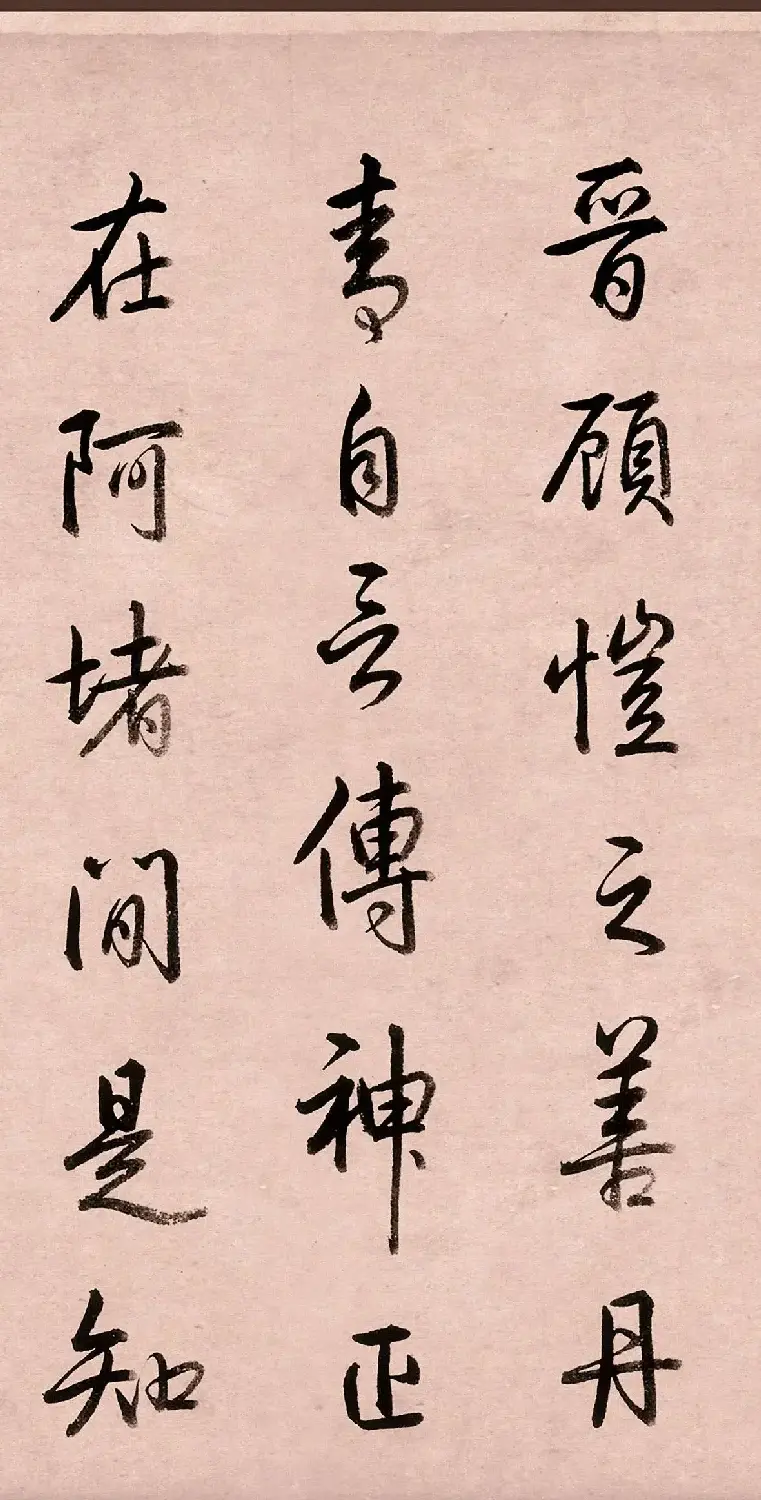 晉顧愷之善丹
青自言傳神正
在阿堵間是知